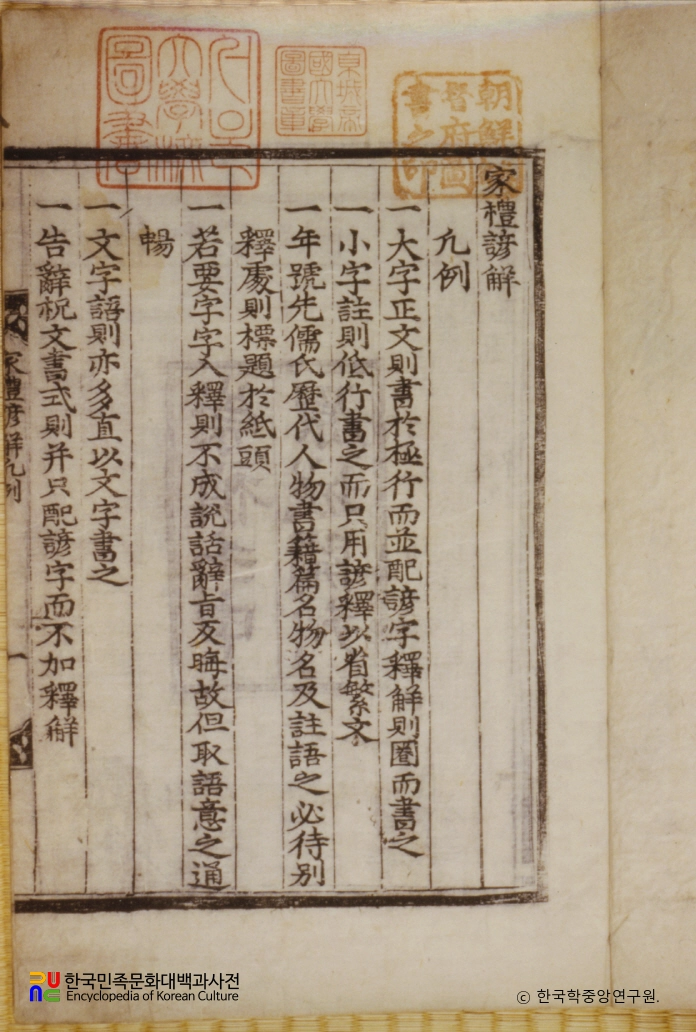 家禮諺解
凡例
一大字正文則書於極行而並配諺字釋解則圈而書之
一小字註則低行書之而只用諺釋以省繁文
一年號先儒氏歷代人物書籍篇名物名及註語之必待別
釋處則標題於紙頭
一若要字字入釋則不成說話辭旨反晦故但取語意之通
暢
一文字語則亦多直以文字書之
一告辭祝文書式則并只配諺字而不加釋觧
家禮諺解凡例
一
朝鮮總督府圖書之印
京城帝國大學圖書章
서울大學校圖書
한국민족문화대백과사전
Encyclopedia of Korean Culture
© 한국학중앙연구원.